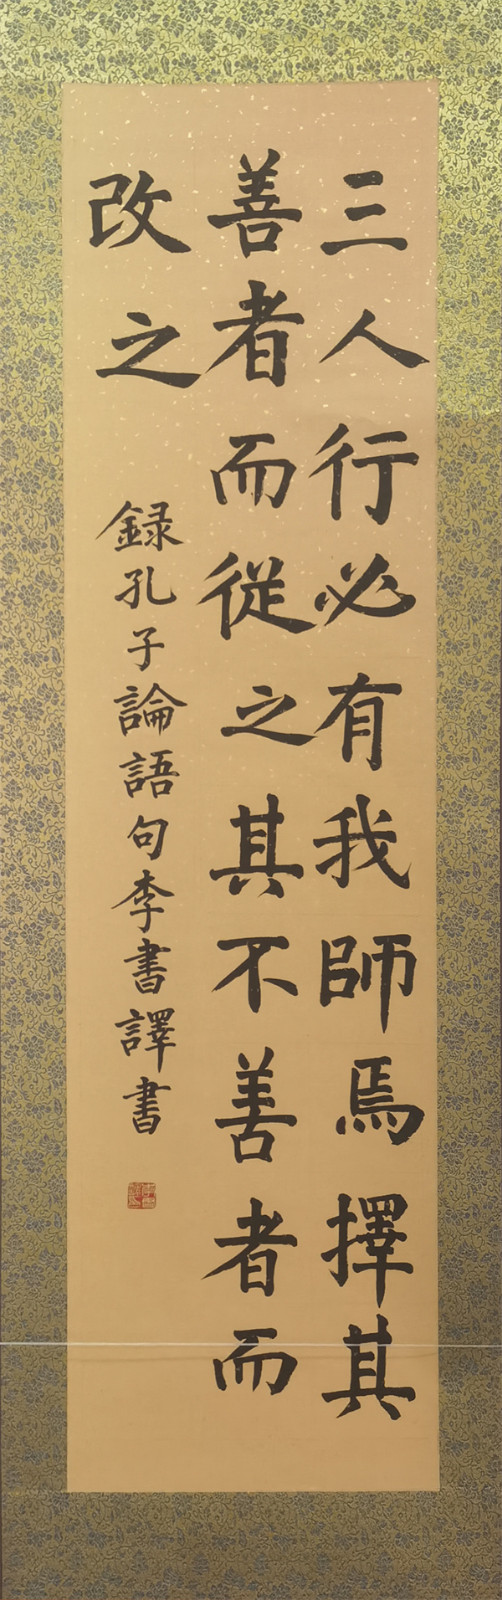 三人行必有我師焉擇其
善者而從之其不善者而
改之
録孔子論語句李書譯書